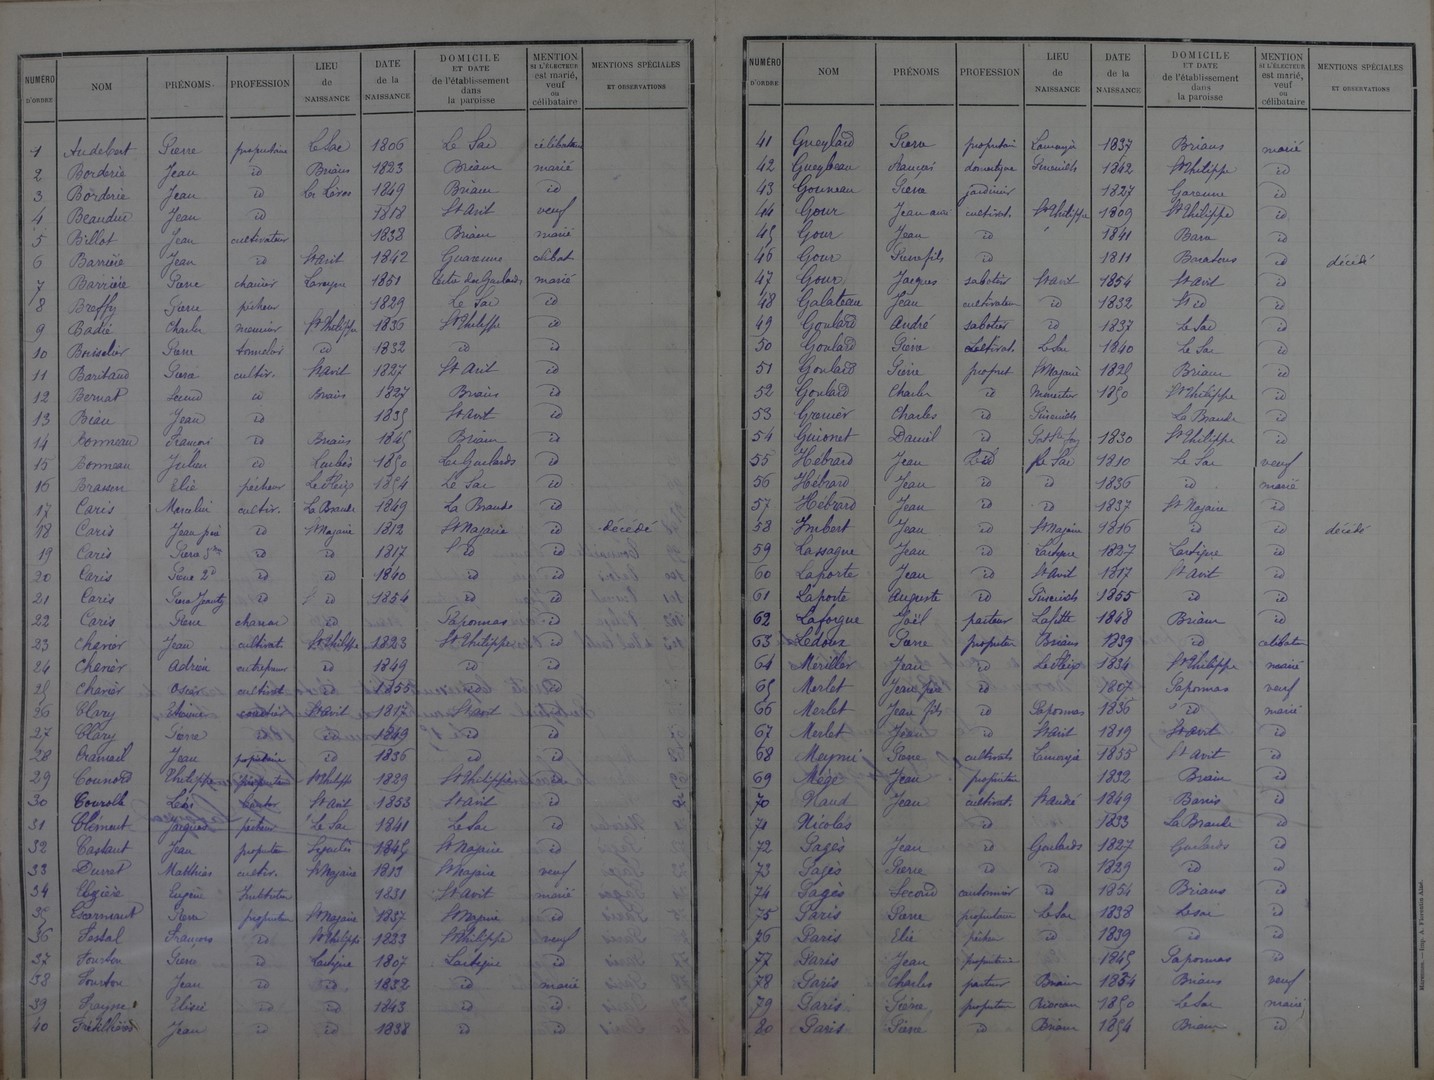 NUMÉRO D'ORDRE NOM PRÉNOMS PROFESSION LIEU de NAISSANCE DATE de la NAISSANCE DOMICILE ET DATE de l'établissement dans la paroisse MENTION SI L'ÉLECTEUR est marié, veuf ou célibataire MENTIONS SPÉCIALES ET OBSERVATIONS
1 Audebert Pierre propriétaire Le Sac 1806 Le Sac célibataire
2 Borderie Jean id Brians 1823 Briam marié
3 Borderie Jean id 1849 Briam id
4 Beaudin Jean id 1818 St Avit veuf
5 Billot Jean cultivateur 1838 Briam marié
6 Barrière Jean id St Avit 1842 Guarenne célibat
7 Barrière Pierre 1851 marié
8 Breffy Pierre pêcheur 1829 Le Sac id
9 Badié Charles meunier St Philippe 1836 St Philippe id
10 Boisselier Pierre tonnelier id 1832 id id
11 Baritaud Pierre cultiv. St Avit 1827 St Avit id
12 Bernat id Brians 1827 Brians id
13 Jean id 1835 St Avit id
14 Bonneau François id Brians 1845 Briam id
15 Bonneau Julien id 1850 id
16 Brassen Elie pêcheur Le Fleix 1854 Le Sac id
17 Caris Marcelin cultiv. La Braude 1849 La Braude id
18 Caris Jean père id St Nazaire 1812 St Nazaire id décédé
19 Caris Pierre id id 1817 id id
20 Caris Pierre 2d id id 1840 id id
21 Caris Pierre id id 1854 id id
22 Caris Pierre id Saponnas id
23 Chenier Jean cultivat St Philippe 1823 St Philippe id
24 Chenier Adrien id 1849 id id
25 Chenier Oscar cultivat id 1855 id id
26 Clary Etienne St Avit 1817 St Avit id
27 Clary Pierre id id 1849 id id
28 Jean id 1836 id id
29 Counord Philippe propriétaire St Philippe 1829 St Philippe id
30 Léon St Avit 1853 St Avit id
31 Clément Jacques pêcheur Le Sac 1841 Le Sac id
32 Castaut Jean propriétaire 1845 St Nazaire id
33 Durret Matthias cultiv. St Nazaire 1813 St Nazaire veuf
34 Eugène Instituteur 1831 St Avit marié
35 Pierre propriétaire St Nazaire 1837 St Nazaire id
36 Festal François id St Philippe 1823 St Philippe veuf
37 Fourton Pierre id Lartigue 1807 Lartigue id
38 Fourton Jean id id 1832 id marié
39 id id 1843 id id
40 Jean id id 1838 id id
NUMÉRO D'ORDRE NOM PRÉNOMS PROFESSION LIEU de NAISSANCE DATE de la NAISSANCE DOMICILE ET DATE de l'établissement dans la paroisse MENTION SI L'ÉLECTEUR est marié, veuf ou célibataire MENTIONS SPÉCIALES ET OBSERVATIONS
41 Gueylard Pierre propriétai 1837 Brians marié
42 François domestique 1842 St Philippe id
43 Gouneau Pierre jardinier 1827 Garenne id
44 Gour Jean cultivat. St Philippe 1809 St Philippe id
45 Gour Jean id 1841 id
46 Gour Pierre fils id 1811 id décédé
47 Gour Jacques sabotier St Avit 1854 St Avit id
48 Galateau Jean cultivateur id 1832 St id id
49 Goulard André sabotier id 1837 Le Sac id
50 Goulard Pierre cultivat. Le Sac 1840 Le Sac id
51 Goulard Pierre propriet St Nazaire 1825 Briam id
52 Goulard Charles id 1850 St Philippe id
53 Grenier Charles id La Braude id
54 Guionet Daniel id 1830 St Philippe id
55 Hébrard Jean id Le Sac 1810 Le Sac veuf
56 Hébrard Jean id id 1836 id marié
57 Hébrard Jean id id 1837 St Nazaire id
58 Imbert Jean id St Nazaire 1816 id id décédé
59 Lassague Jean id Lartigue 1827 Lartigue id
60 Laporte Jean id St Avit 1817 St Avit id
61 Laporte Auguste id 1855 id id
62 Laforgue pasteur Lafitte 1848 Briam id
63 Ledoux Pierre propriétair Brians 1839 id célibatai
64 Jean id Le Fleix 1834 St Philippe marié
65 Merlet Jean père id 1807 Saponnas veuf
66 Merlet Jean fils id Saponnas 1836 id marié
67 Merlet Jean id St Avit 1819 St Avit id
68 Meynié Pierre cultivat 1855 St Avit id
69 Mège Jean propriétair 1832 Brian id
70 Naud Jean cultivat. St André 1849 id
71 Nicolas id 1833 La Braude id
72 Pagès Jean id Goulards 1827 Goulards id
73 Pagès Pierre id id 1829 id id
74 Pagès Second cantonnier id 1854 Brians id
75 Paris Pierre propriétaire Le Sac 1838 Le Sac id
76 Paris Elie pêcheur id 1839 id id
77 Paris Jean propriétaire 1845 Saponnas id
78 Paris Charles pasteur Briam 1834 Brians veuf
79 Paris Pierre propriétair 1850 Le Sac marié
80 Paris Pierre id Briam 1854 Briam id
Marennes. — Imp. A. Florentin Aîné.